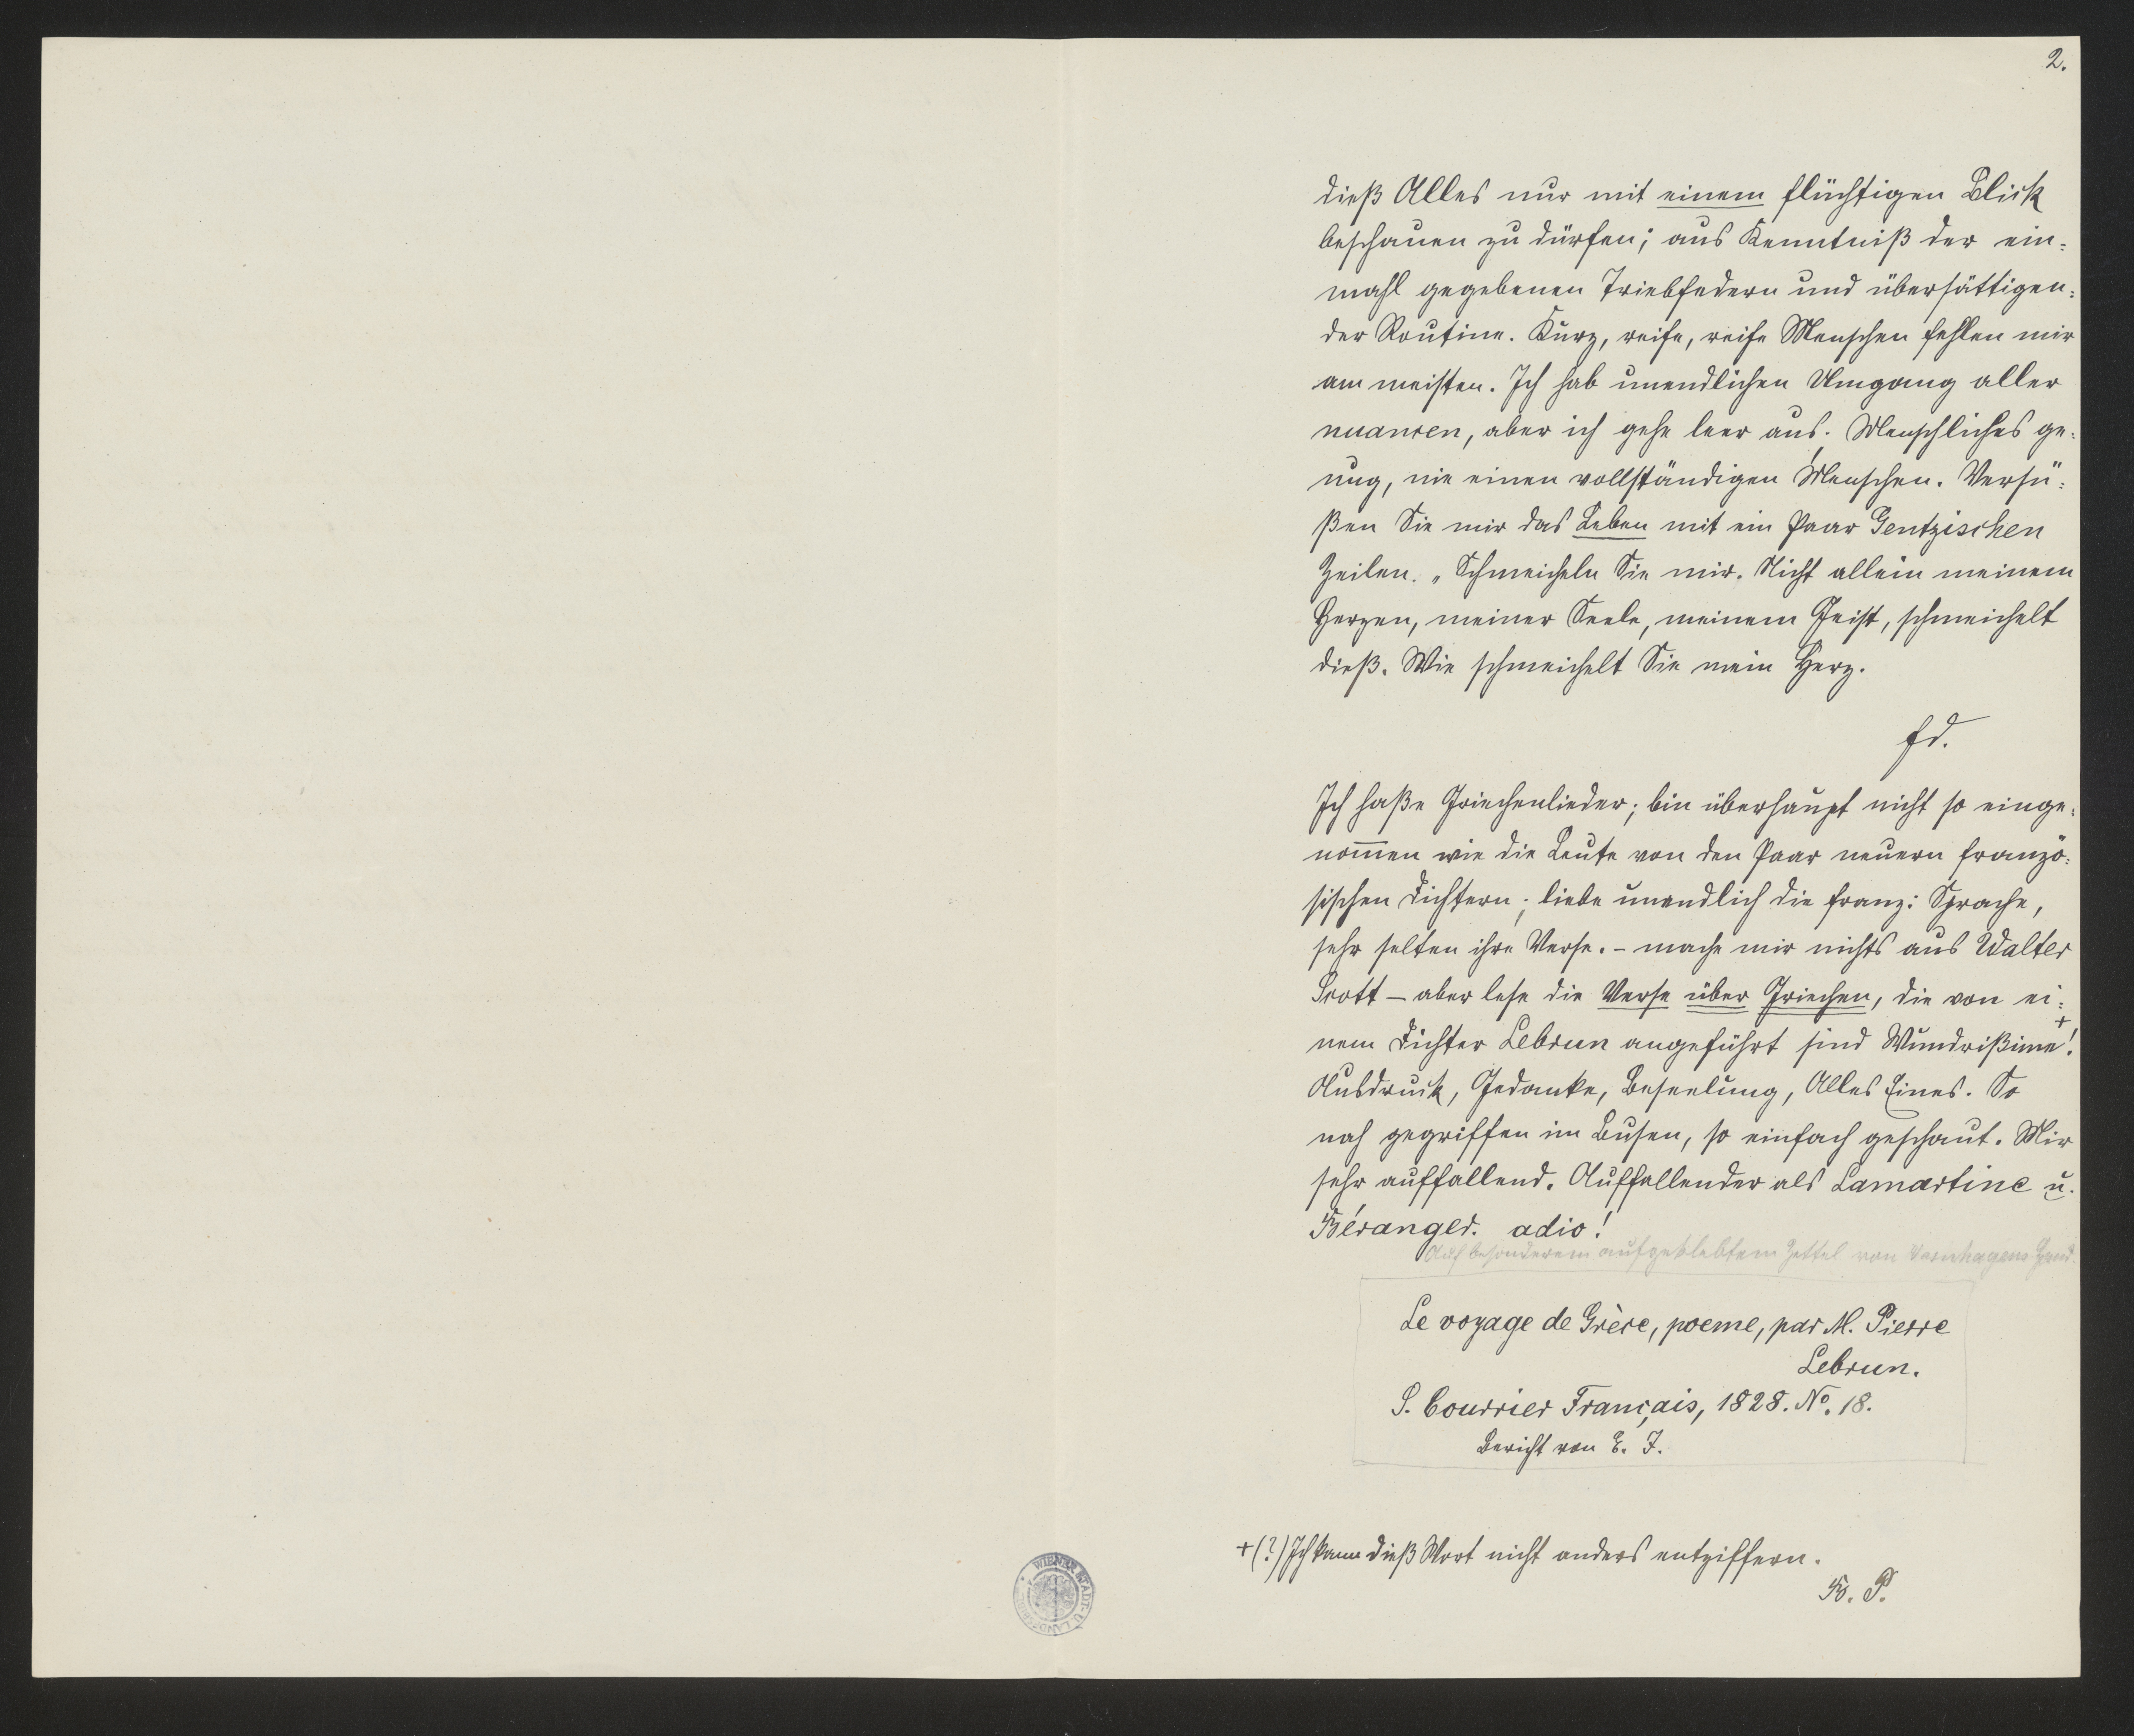 2.
dieß Alles nur mit einem flüchtigen Blick
beschauen zu dürfen; aus Kenntniß der ein-
mahl gegebenen Triebfedern und übersättigen-
der Routine. Kurz, reife, reife Menschen fehlen mir
am meisten. Ich hab unendlichen Umgang aller
nuancen, aber ich gehe leer aus. Menschliches ge-
nug, nie einen vollständigen Menschen. Versü-
ßen Sie mir das Leben mit ein Paar Gentzischen
Zeilen. „Schmeicheln Sie mir. Nicht allein meinem
Herzen, meiner Seele, meinem Geist, schmeichelt
dieß. Wie schmeichelt Sie mein Herz.
Fd.
Ich haße Griechenlieder; bin überhaupt nicht so einge-
nom̅en wie die Leute von den Paar neuern franzö-
sischen Dichtern; liebe unendlich die franz: Sprache,
sehr selten ihre Verse. – mache mir nichts aus Walter
Scott – aber lese die Verse über Griechen, die von ei-
nem Dichter Lebrun angeführt sind Wundrißime+!
Ausdruck, Gedanke, Beseelung, Alles Eines. So
nah gegriffen im Busen, so einfach geschaut. Mir
sehr auffallend. Auffallender als Lamartine u.
Béranger. adio!
Auf besonderem aufgeklebtem Zettel von Varnhagens Hand.
Le voyage de Grèce, poeme, par M. Pierre
Lebrun.
S. Courrier Français, 1828. No. 18.
Bericht von E. J.
+(?) Ich kann dieß Wort nicht anders entziffern.
Fr. P.
WIENER STADT- U. LANDES